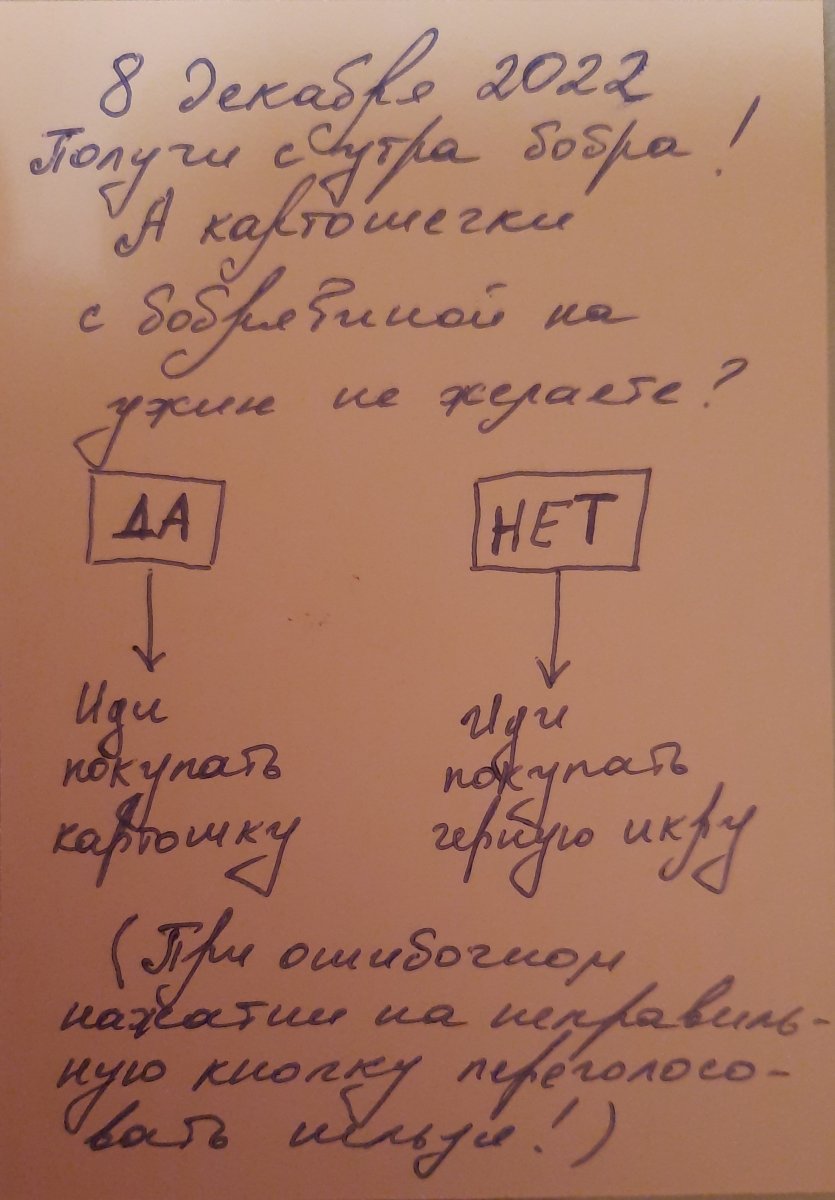 8 декабря 2022
Получи с утра бобра!
А картошечки
с бобрятиной на
ужин не желаете?
ДА НЕТ
Иди Иди
покупать покупать
картошку чёрную икру
(При ошибочном
нажатии на неправиль-
ную кнопку переголосо-
вать нельзя!)